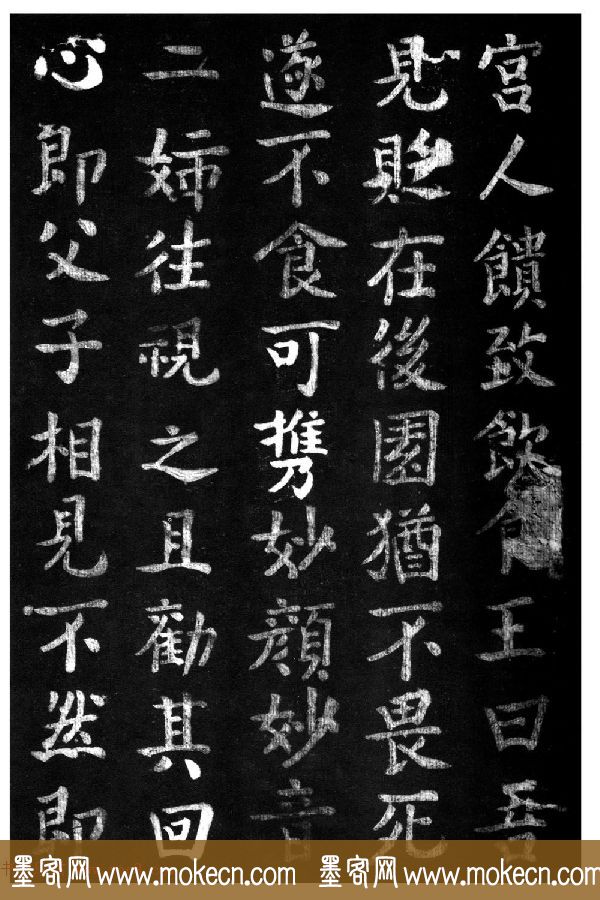 宫人饋致飲食王曰吾
見貶在後園猶不畏死
遂不食可携妙顔妙音
二姊往視之且勧其回
心即父子相見不然即
墨客网 www.mokecn.com 墨客网 www.mokecn.com